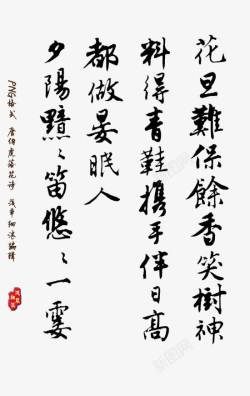 花旦難保餘香笑樹神
料得青鞋攜手伴日高
都做晏眠人
夕陽黯黯笛悠悠一霎
PNG格式 唐伯虎落花诗